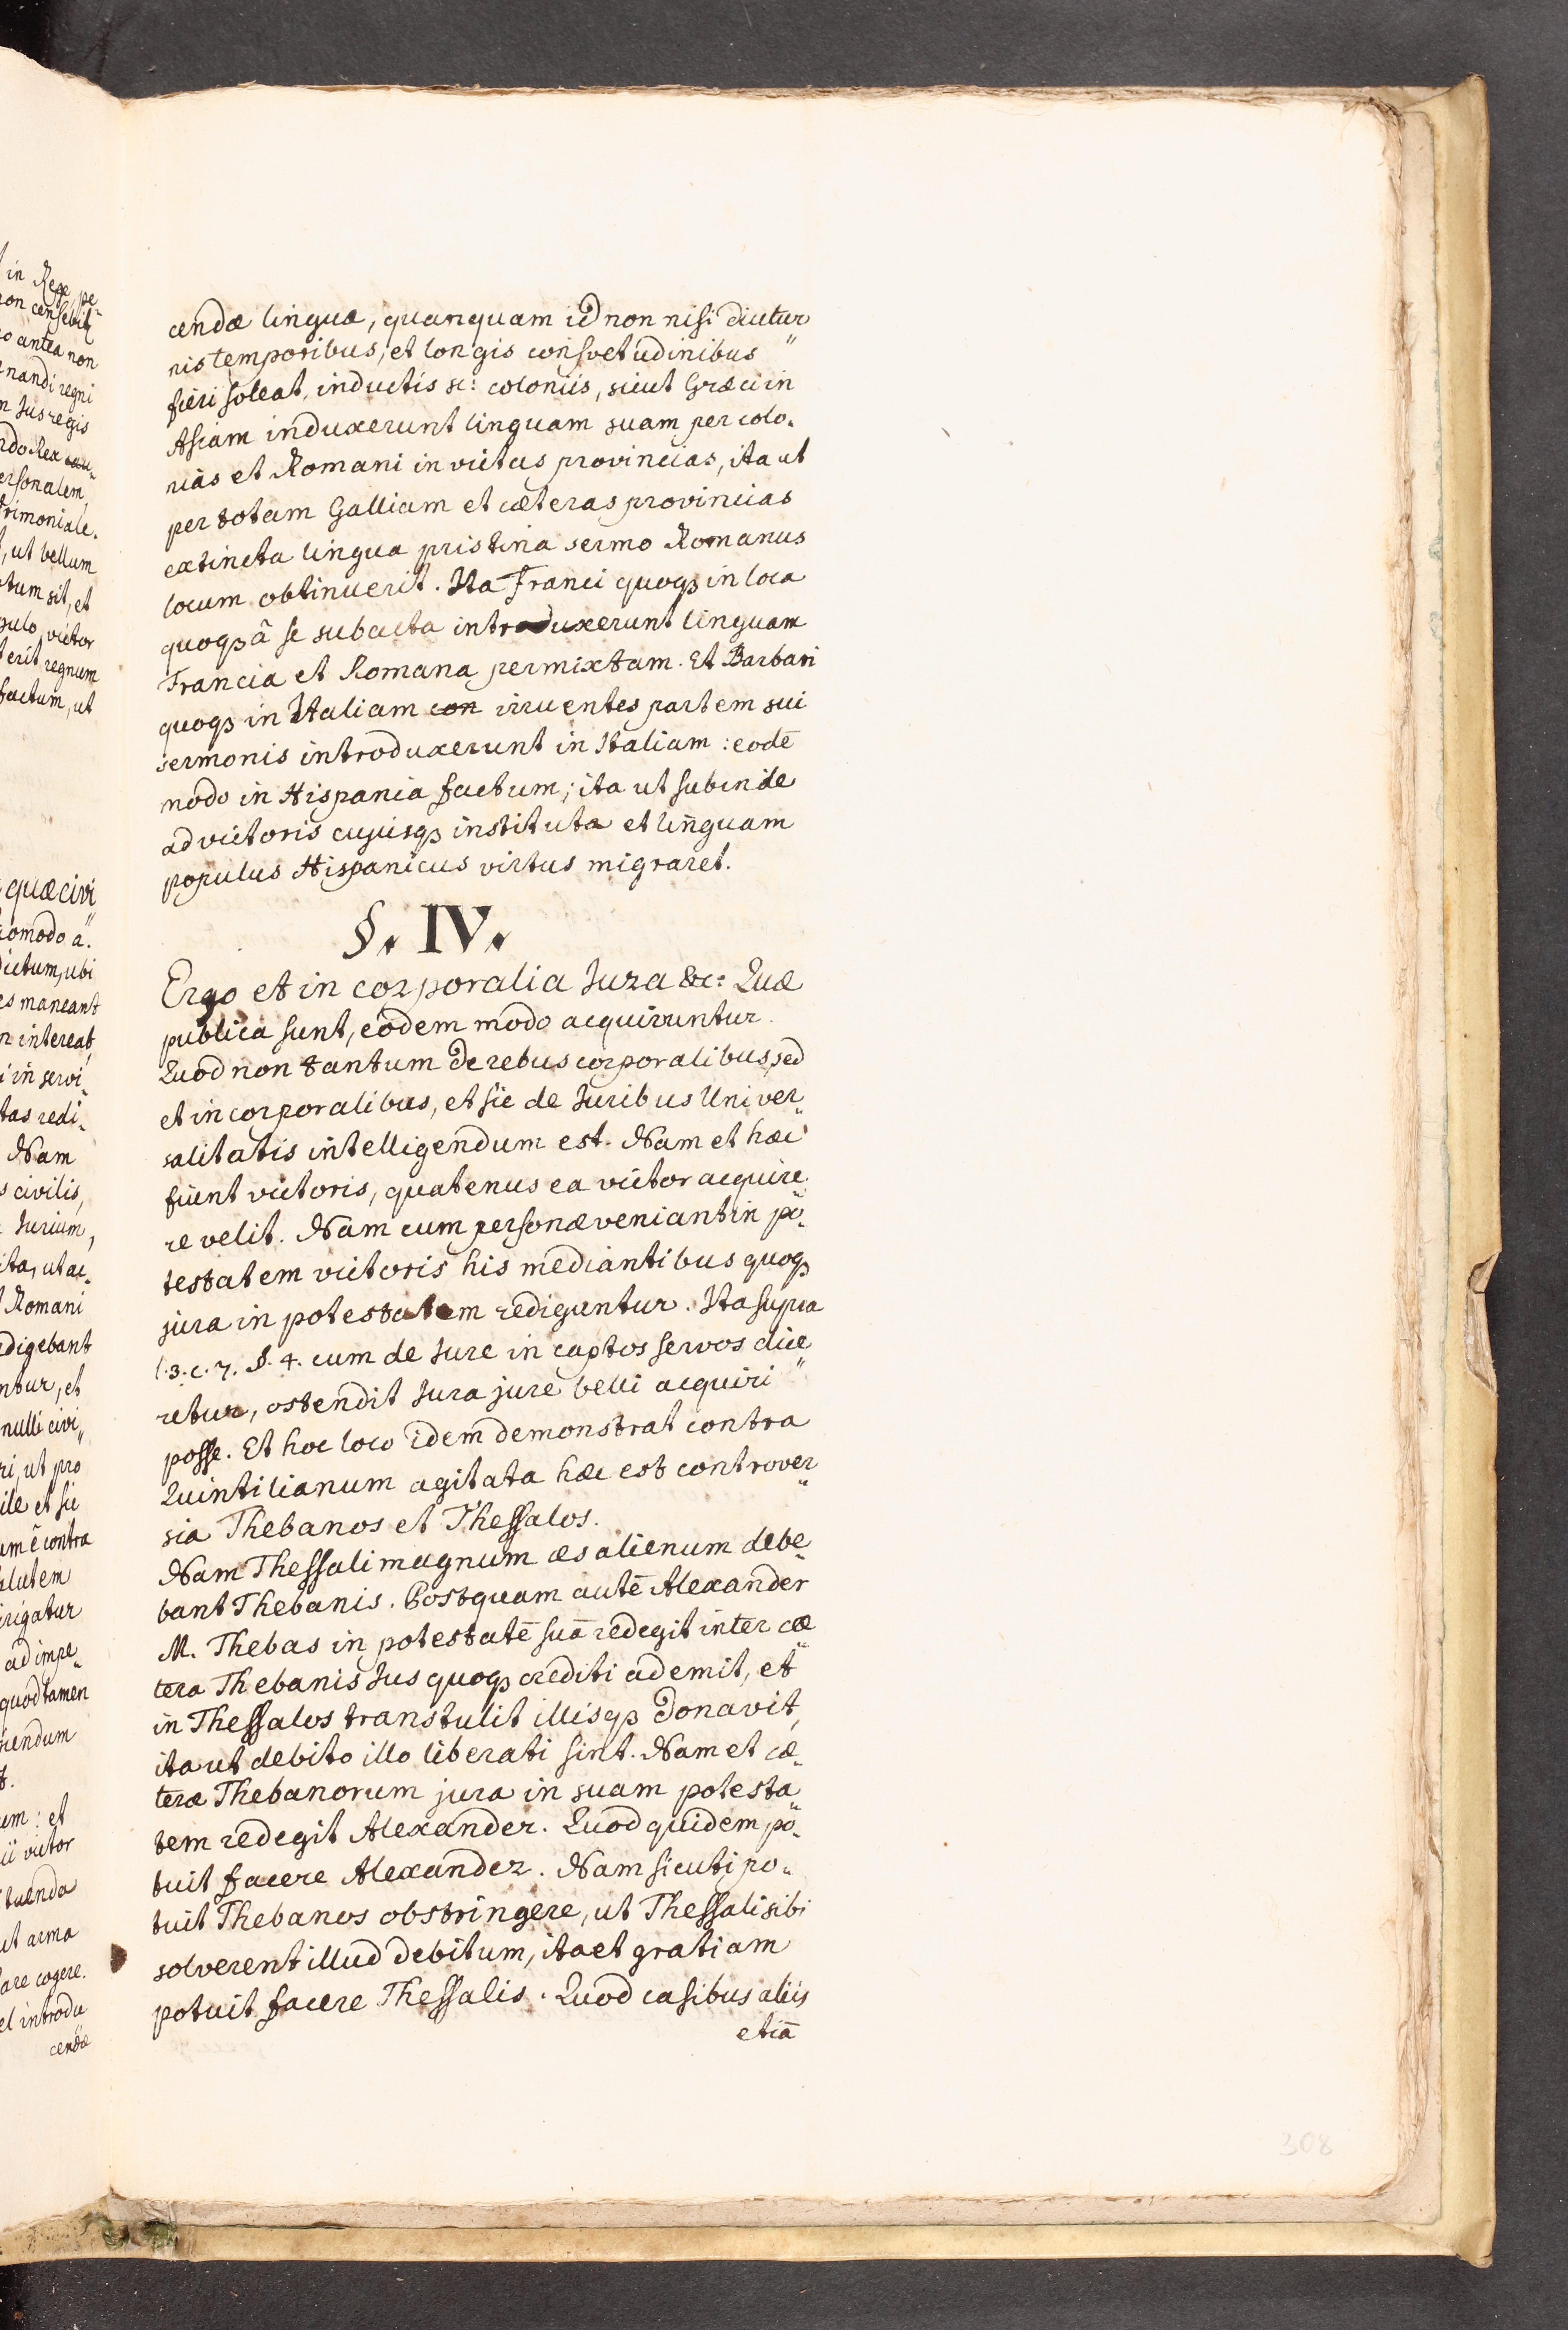 cendæ linguæ, quanquam id non nisi diutur
nis temporibus, et longis consvetudinibus "
fieri soleat, inductis sc: coloniis, sicut Græci in
Asiam induxerunt linguam suam per colo-
nias et Romani in victas provincias, ita ut
per totam Galliam et cæteras provincias
extincta lingua pristina sermo Romanus
locum obtinuerit. Ita Franci quoqꝫ in loca
quoqꝫ â se subacta introduxerunt linguam
Francia et Romana permixtam. Et Barbari
quoqꝫ in Italiam con irruentes partem sui
sermonis introduxerunt in Italiam: eodē
modo in Hispania factum; ita ut subinde
ad victoris cujusqꝫ instituta et linguam
populus Hispanicus virtus migraret.
§. IV.
Ergo et in corporalia Jura &c: Quæ
publica sunt, eodem modo acquiruntur.
Quod non tantum de rebus corporalibus, sed
et in corporalibus, et sic de Juribus Univer„
salitatis intelligendum est. Nam et hæc
fiunt victoris, quatenus ea victor acquire„
re velit. Nam cum personæ veniant in po„
testatem victoris his mediantibus quoqꝫ
jura in potestatem rediguntur. Ita supra
l. 3. c. 7. §. 4. cum de Jure in captos servos dice
retur, ostendit Jura jure belli acquiri "
posse. Et hoc loco idem demonstrat contra
Quintilianum agitata hæc est controver„
sia Thebanos et Thessalos.
Nam Thessali magnum æs alienum debe„
bant Thebanis. Postquam autē Alexander
M. Thebas in potestatē suā redegit inter cæ„
tera Thebanis Jus quoqꝫ crediti ademit, et
in Thessalos transtulit illisqꝫ donavit,
ita ut debito illo liberati sint. Nam et cæ„
teræ Thebanorum jura in suam potesta„
tem redegit Alexander. Quod quidem po„
tuit facere Alexander. Nam sicuti po„
tuit Thebanos obstringere, ut Thessali sibi
solverent illud debitum, ita et gratiam
potuit facere Thessalis. Quod casibus aliis
etiā
308